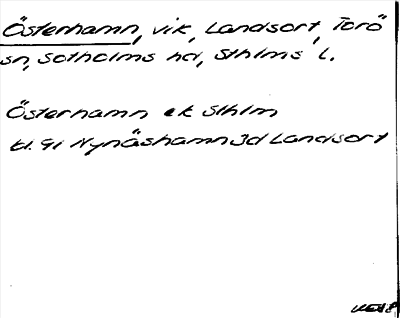 Österhamn, vik, Landsort, Torö
sn, Sotholms hd, Sthlms l.
Österhamn ek Sthlm
bl. 91 Nynäshamn 3d Landsort